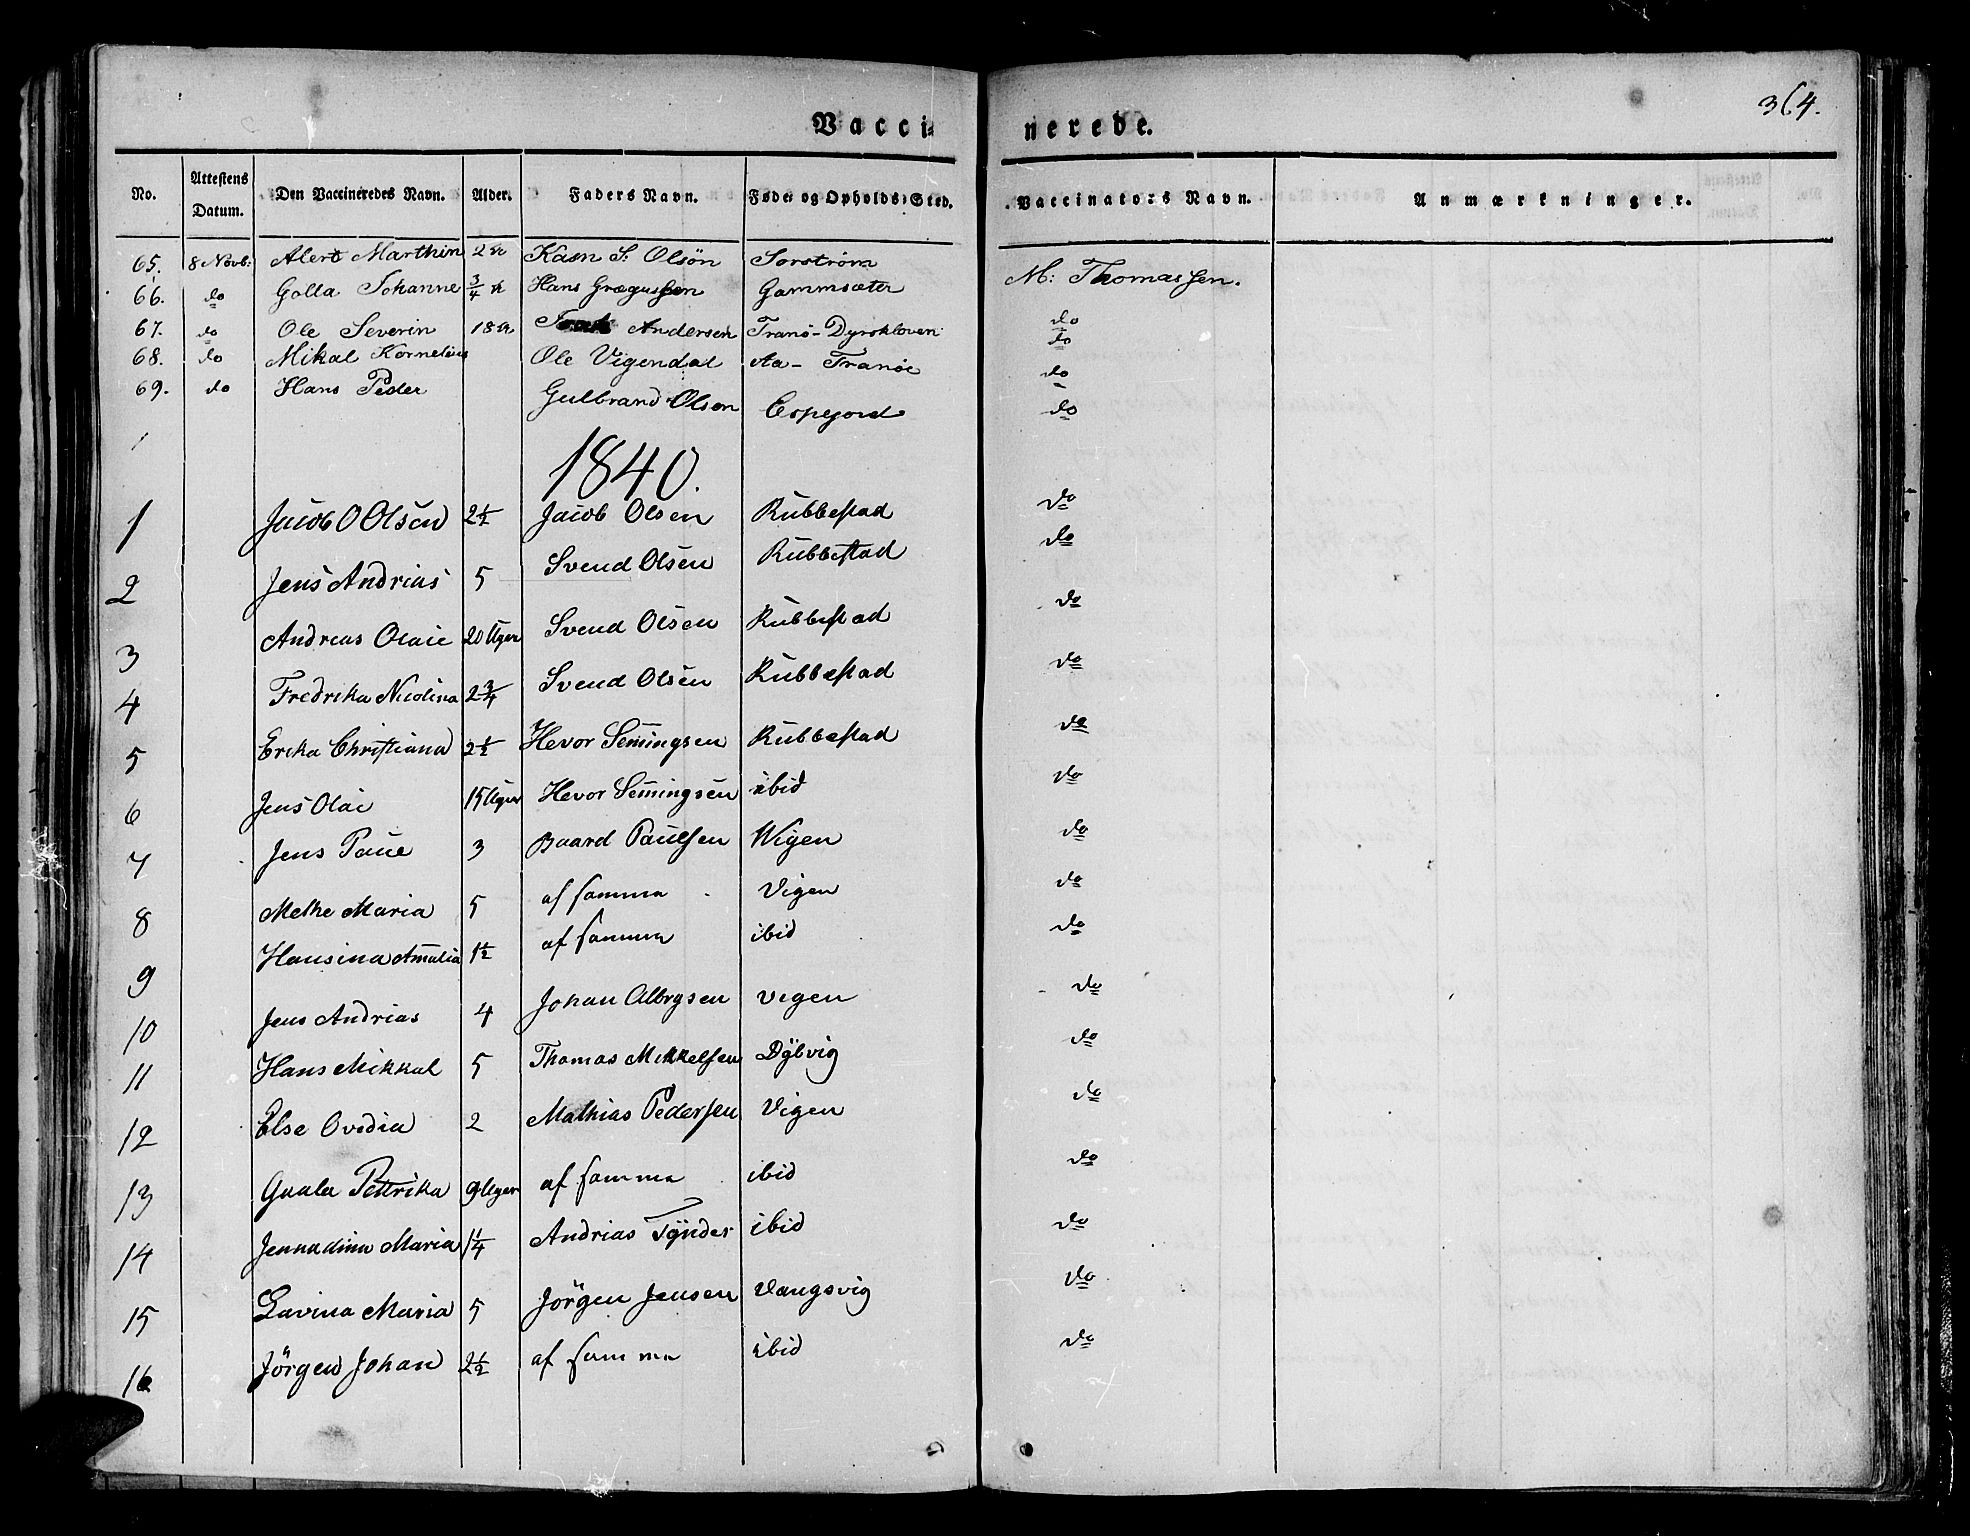 364.
Vaccinerede.
No. Attestens Datum. Den Vaccineredes Navn. Alder. Faders Navn. Føde- og Opholds-Sted. Vaccinators Navn. Anmærkninger.
65. 8 Novb: Alert Marthin 2 S: Olsön Sorstrøm M: Thomassen.
66. do Golla Johanne 3/4 Hans Grægussen Gammsæter
67. do Ole Severin 18 Andersen Tranö-Dyrskloven do
68. do Mikal Kornelius Ole Vigendal Aa- Tranöe do
69. do Hans Peder Gulbrand Olsen Espejord do
1840.
1 Jacob O Olsen 2½ Jacob Olsen Rubbestad do
2 Jens Andrias 5 Svend Olsen Rubbestad do
3 Andreas Olaie 20 Uger Svend Olsen Rubbestad do
4 Fredrika Nicolina 2¾ Svend Olsen Rubbestad do
5 Erika Christiana 2½ Hevor Semingsen Rubbestad do
6 Jens Olai 15 Uger Hevor Semingsen ibid do
7 Jens Paue 3 Baard Paulsen Wigen do
8 Methe Maria 5 af samma Vigen do
9 Hansina Amalia 1½ af samma ibid do
10 Jens Andrias 4 Johan Albrgsen vigen do
11 Hans Mikkal 5 Thomas Mikkelsen Dybvig do
12 Else Ovedia 2 Mathias Pedersen Vigen do
13 Petrika 9 Uger af samma ibid do
14 Jennadina Maria 1¼ Andrias Tÿnder ibid do
15 Lavina Maria 5 Jörgen Jensen Vangsvig do
16 Jörgen Johan 2½ af samma ibid do